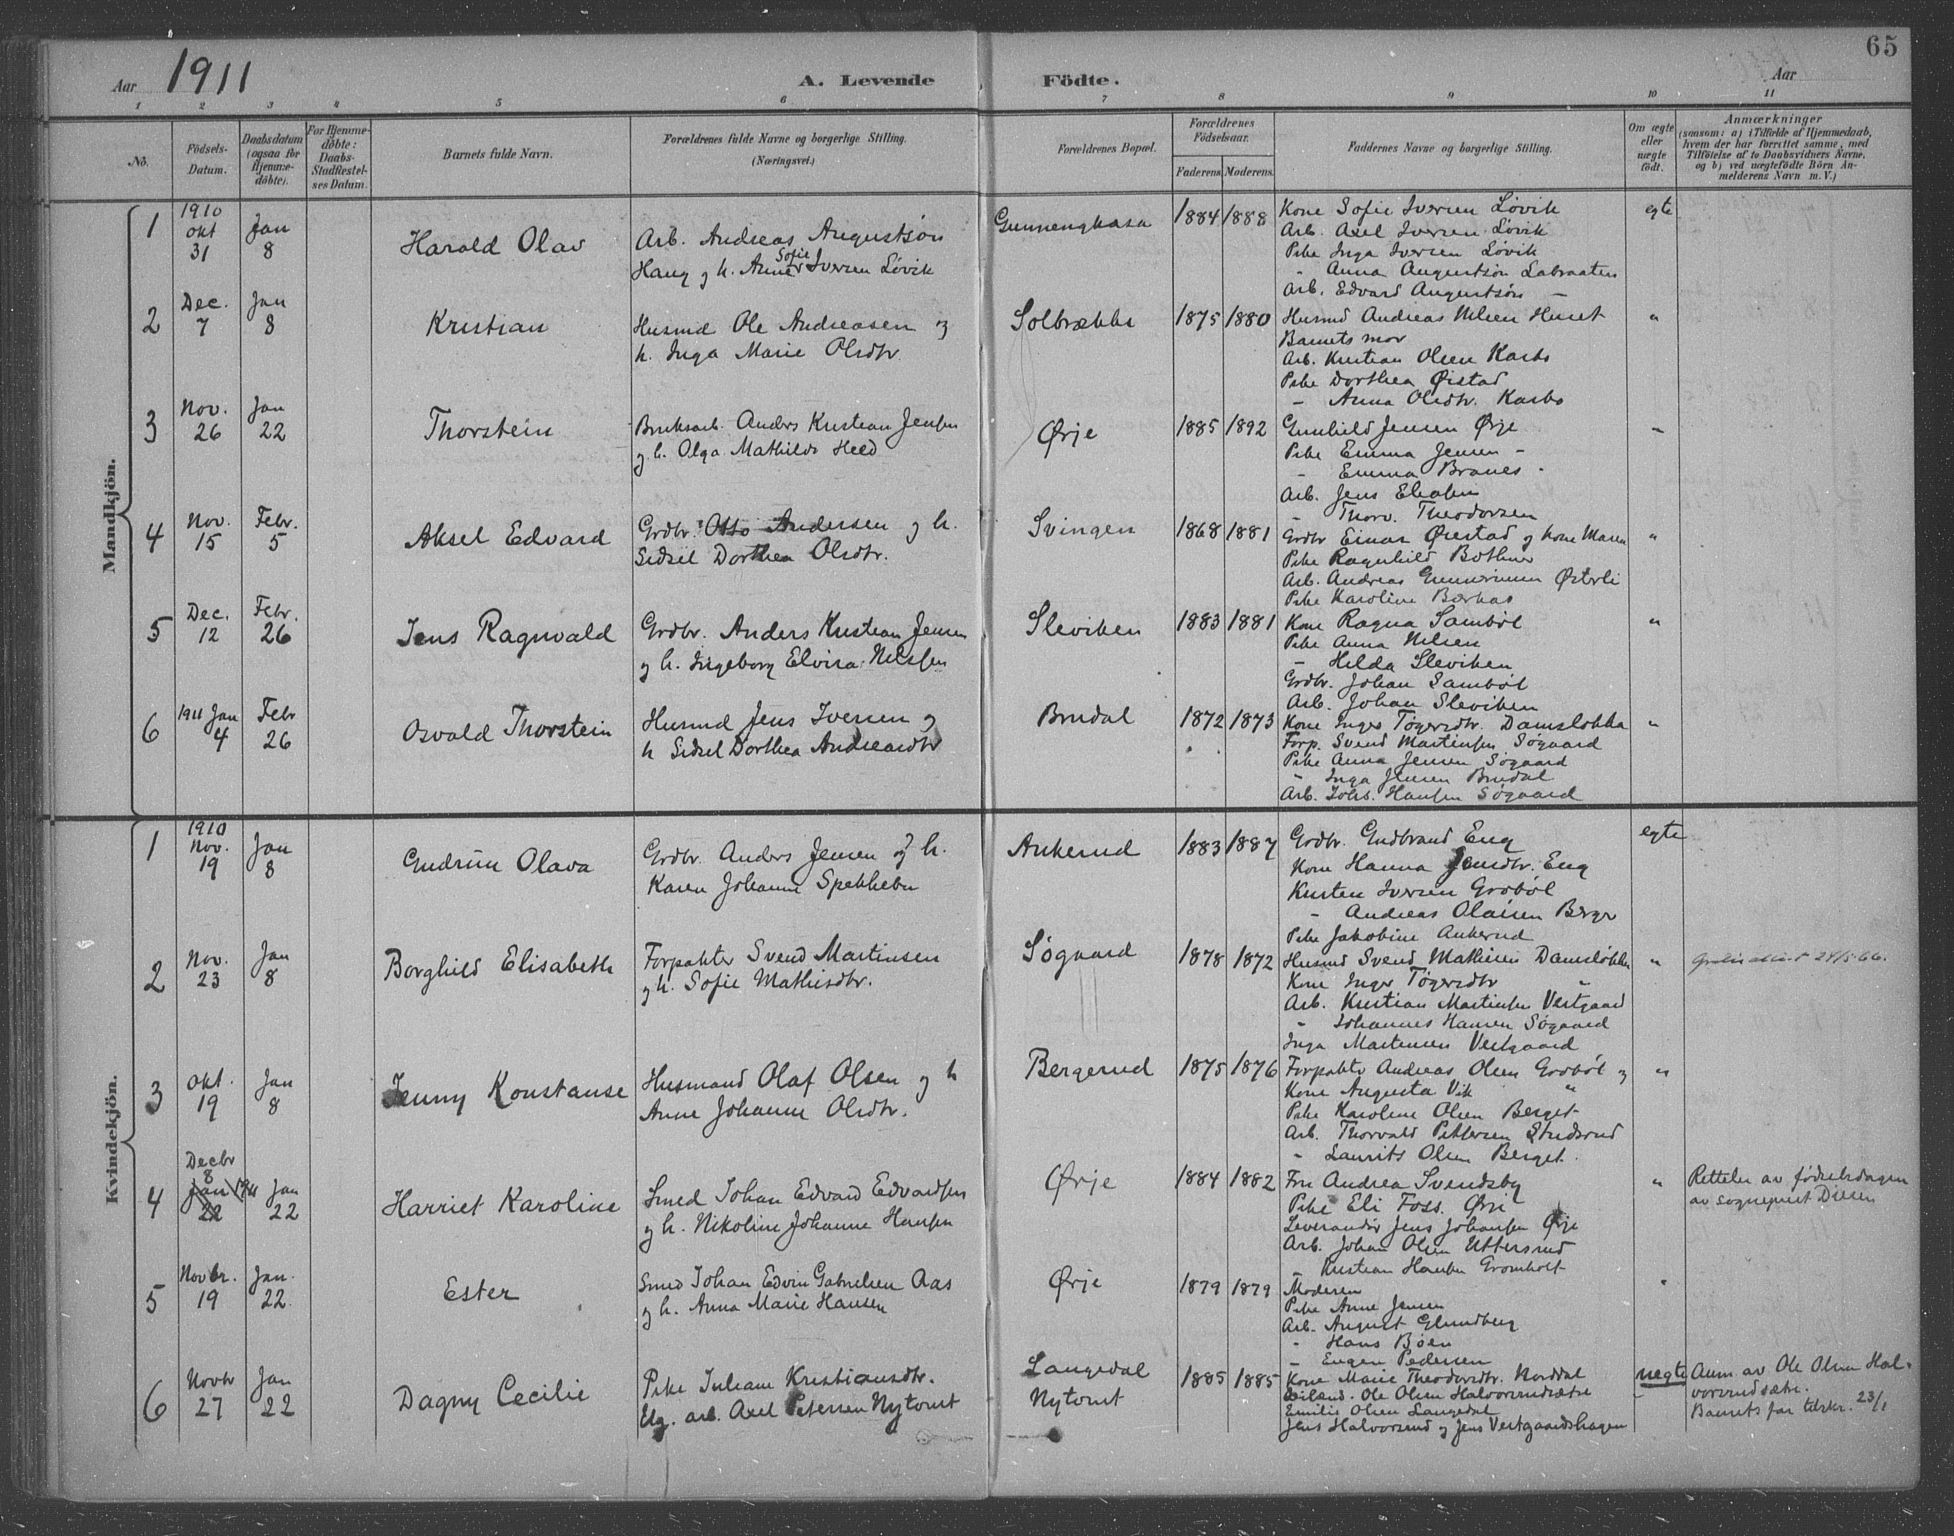 65
Aar 1911 A. Levende Födte. Aar
1 2 3 4 5 6 7 8 9 10 11
No.
Födsels-Datum.
Daabsdatum (ogsaa for Hjemme-döbte).
For Hjemme-döbte: Daabs-Stadfæstel-ses Datum.
Barnets fulde Navn.
Forældrenes fulde Navne og borgerlige Stilling.
(Næringsvei.)
Forældrenes Bopæl.
Forældrenes Födselsaar.
Faderens. Moderens.
Faddernes Navne og borgerlige Stilling.
Om ægte eller uægte födt.
Anmærkninger
(saasom: a) i Tilfælde af Hjemmedaab,
hvem der har forrettet samme, med
Tilföielse af to Daabsvidners Navne,
og b) ved uægtefödte Börn An-
melderens Navn m. V.)
Mandkjön.
1
1910 Okt 31
Jan 8
Harald Olav
Arb. Andreas Augustsøn
Haug og h. Anne Sofie Iversen Løvik
1884 1888
Kone Sofie Iversen Løvik
Arb. Axel Iversen Løvik
Pike Inga Iversen Løvik
" Anna Augustsøn Labraaten
Arb. Edvard Augustsøn —
egte
2
Dec. 7
Jan 8
Kristian
Husmd Ole Andreasen og
h. Inga Marie Olsdtr.
Solbrække
1875 1880
Husmd Andreas Nilsen Huset
Barnets mor
Arb. Kristian Olsen Karbo
Pike Dorthea Øistad
— Anna Olsdtr. Karbo
"
3
Nov. 26
Jan 22
Thorstein
Bruksarb. Anders Kristian Jensen
og h. Olga Mathilde Heed
Ørje
1885 1892
Gunhild Jensen Ørje
Pike Emma Jensen —
— Emma Branes "
Arb. Jens
— Thorv. Theodorsen
"
4
Nov. 15
Febr. 5
Aksel Edvard
Grdbr. Otto Andersen og h.
Sidsel Dorthea Olsdtr.
Svingen
1868 1881
Grdbr Einar Ørestad og kone Maren
Pike Ragnhild Bothner
Arb. Andreas Gunnersen Østerli
Pike Karoline
"
5
Dec. 12
Febr. 26
Jens Ragnvald
Grdbr. Anders Kristian Jensen
og h. Ingeborg Elvira Nilsen
Sleviken
1883 1881
Kone Ragna Sambøl
Pike Anna Nilsen
— Hilda Sleviken
Grdbr. Johan Sambøl
Arb. Johan Sleviken
"
6
1911 Jan 4
Febr 26
Osvald Thorstein
Husmd Jens Iversen og
h Sidsel Dorthea Andreasdtr
Brudal
1872 1873
Kone Inger Tøgersdtr. Damsløkka
Forp. Svend Martinsen Søgaard
Pike Anna Jensen Søgaard
" Inga Jensen Brudal
Arb. Johs. Hansen Søgaard
"
Kvindekjön.
1
1910 Nov. 19
Jan 8
Gudrun Olava
Grdbr. Anders Jensen og h.
Karen Johanne Spekkebu
Ankerud
1883 1887
Grdbr. Gudbrand Eng
Kone Hanna Jensdtr. Eng
Kristen Iversen Grobøl
" Andreas Olausen Berge
Pike Jakobine Ankerud
egte
2
Nov. 23
Jan 8
Borghild Elisabeth
Forpakter Svend Martinsen
og h. Sofie Mathisdtr.
Søgaard
1878 1872
Husmd Svend Mathisen Damsløkka
Kone Inger Tøgersdtr "
Arb. Kristian Martinsen Vestgaard
" Johannes Hansen Søgaard
Inga Martinsen Vestgaard
"
3
Okt. 19
Jan 8
Jenny Konstanse
Husmand Olaf Olsen og h
Anne Johanne Olsdtr.
Bergerud
1875 1876
Forpakter Andreas Olsen Grobøl og
Kone Augusta Vik "
Pike Karoline Olsen Berget
Arb. Thorvald Pettersen Studsrud
" Laurits Olsen Berget.
"
4
Decbr 8
Jan 1911 22
Jan 22
Harriet Karoline
Smed Johan Edvard Edvardsen
og h. Nikoline Johanne Hansen
Ørje
1884 1882
Fru Andrea Svendsby
Pike Eli Foss. Ørje
Leverandør Jens Johansen Ørje
Arb. Johan Olsen Uttersrud
— Kristian Hansen Gromholt
"
Rettelse av fødselsdagen
av sogneprest Diesen
5
Novbr. 19
Jan. 22.
Ester
Smed Johan Edvin Gabrielsen Aas
og h. Anna Marie Hansen
Ørje
1879 1879
Moderen
Pike Anne Jensen
Arb. August
" Hans Bøen
— Eugen Pedersen
"
6
Novbr 27
Jan 22
Dagny Cecilie
Pike Juliane Kristiansdtr.
Elg. arb. Axel Petersen Nytomt
Langedal
Nytomt
1885 1885
Kone Marie Theodorsdtr. Norddal
Ole Olsen Halvorsrudsætre
Emilie Olsen Langedal
Jens Halvorsrud og Jens Vestgaardshagen
uegte
Anm. av Ole Olsen Hal-
vorsrudsætre.
Barnets far tilskr. 23/1